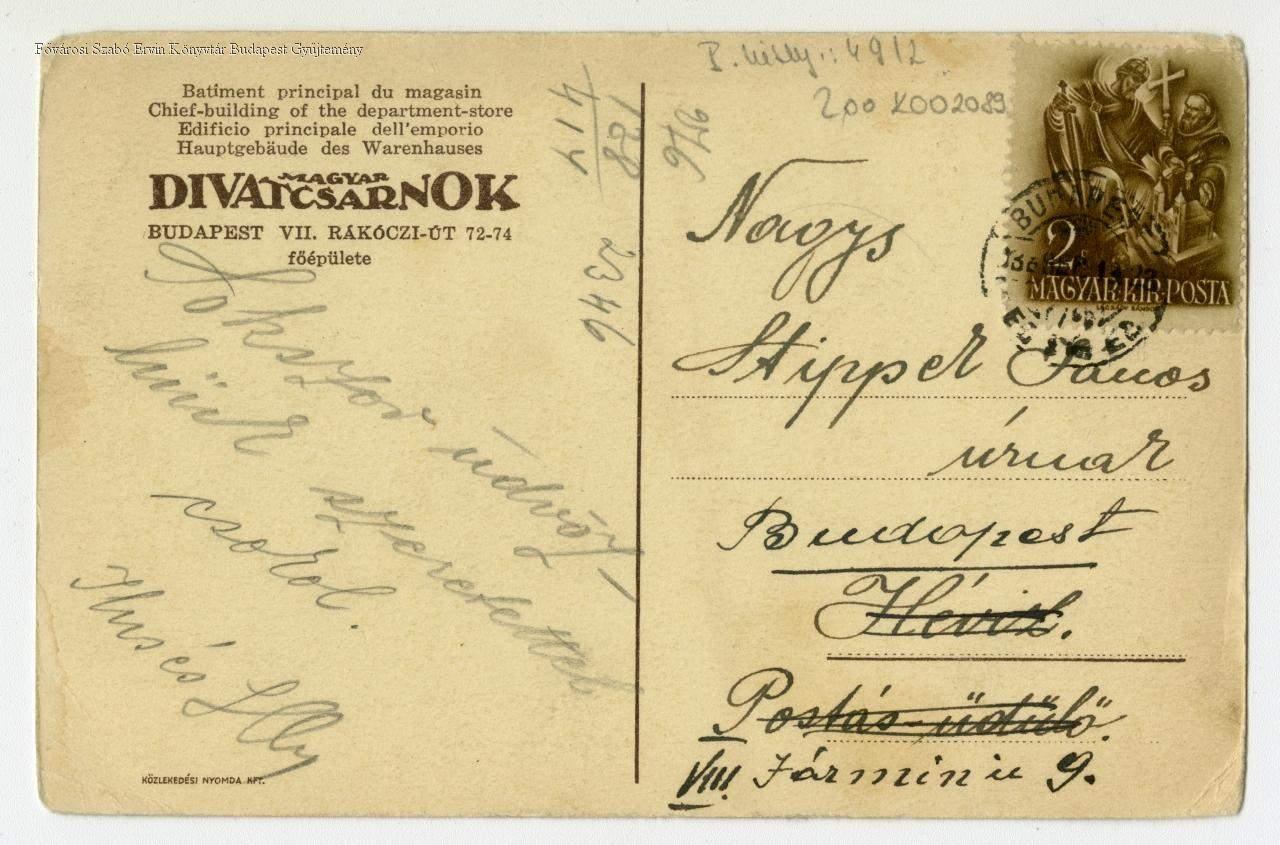 Fővárosi Szabó Ervin Könyvtár Budapest Gyűjtemény
Batiment principal du magasin
Chief-building of the department-store
Edificio principale dell'emporio
Hauptgebäude des Warenhauses
MAGYAR
DIVATCSARNOK
BUDAPEST VII. RÁKÓCZI-ÚT 72-74
főépülete
Sokszor üdvöz-
szeretettel
csokol.
és Illy
KÖZLEKEDÉSI NYOMDA KFT.
128
417
2346
976
4912
200 K002089
2
MAGYAR·KIR·POSTA
Nagys
Stipper János
úrnak
Budapest
Hévíz.
Postás-üdülő.
VIII. Jármin u 9.